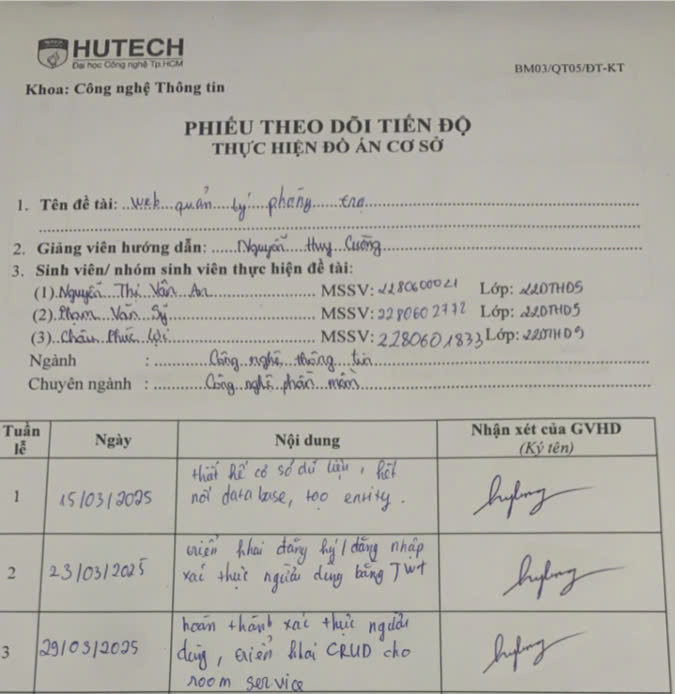 HUTECH
Đại học Công nghệ Tp.HCM
BM03/QT05/ĐT-KT
Khoa: Công nghệ Thông tin
PHIẾU THEO DÕI TIẾN ĐỘ
THỰC HIỆN ĐỒ ÁN CƠ SỞ
1. Tên đề tài: web quản lý phòng trọ
2. Giảng viên hướng dẫn: Nguyễn Huy Cường
3. Sinh viên/ nhóm sinh viên thực hiện đề tài:
(1) Nguyễn Thị Vân An MSSV: 2280600021 Lớp: 22DTHD5
(2) Phạm Văn Sỹ MSSV: 2280602772 Lớp: 22DTHD5
(3) Châu Phúc Lợi MSSV: 2280601833 Lớp: 22DTHD5
Ngành : Công nghệ thông tin
Chuyên ngành : Công nghệ phần mềm
Tuần lễ Ngày Nội dung Nhận xét của GVHD
(Ký tên)
thiết kế cơ sở dữ liệu, kết
1 15/03/2025 nối database, tạo entity.
triển khai đăng ký/đăng nhập
2 23/03/2025 xác thực người dùng bằng JWT
hoàn thành xác thực người
3 29/03/2025 dùng, triển khai CRUD cho
room service